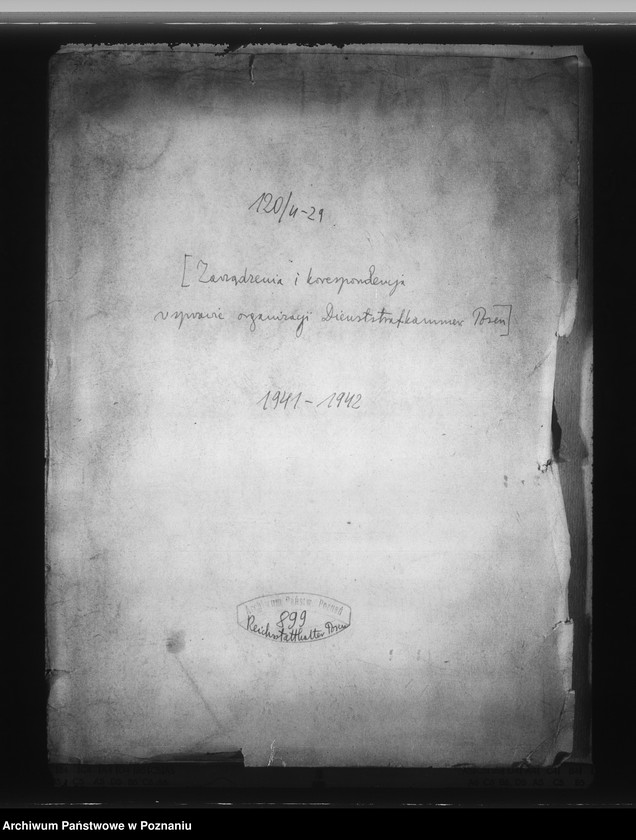 120/4-29
[Zarządzenia i korespondencja
w sprawie organizacji Dienststrafkammer Posen]
1941-1942
Archiwum Państw. Poznań
899
Reichsstatthalter Posen
Archiwum Państwowe w Poznaniu